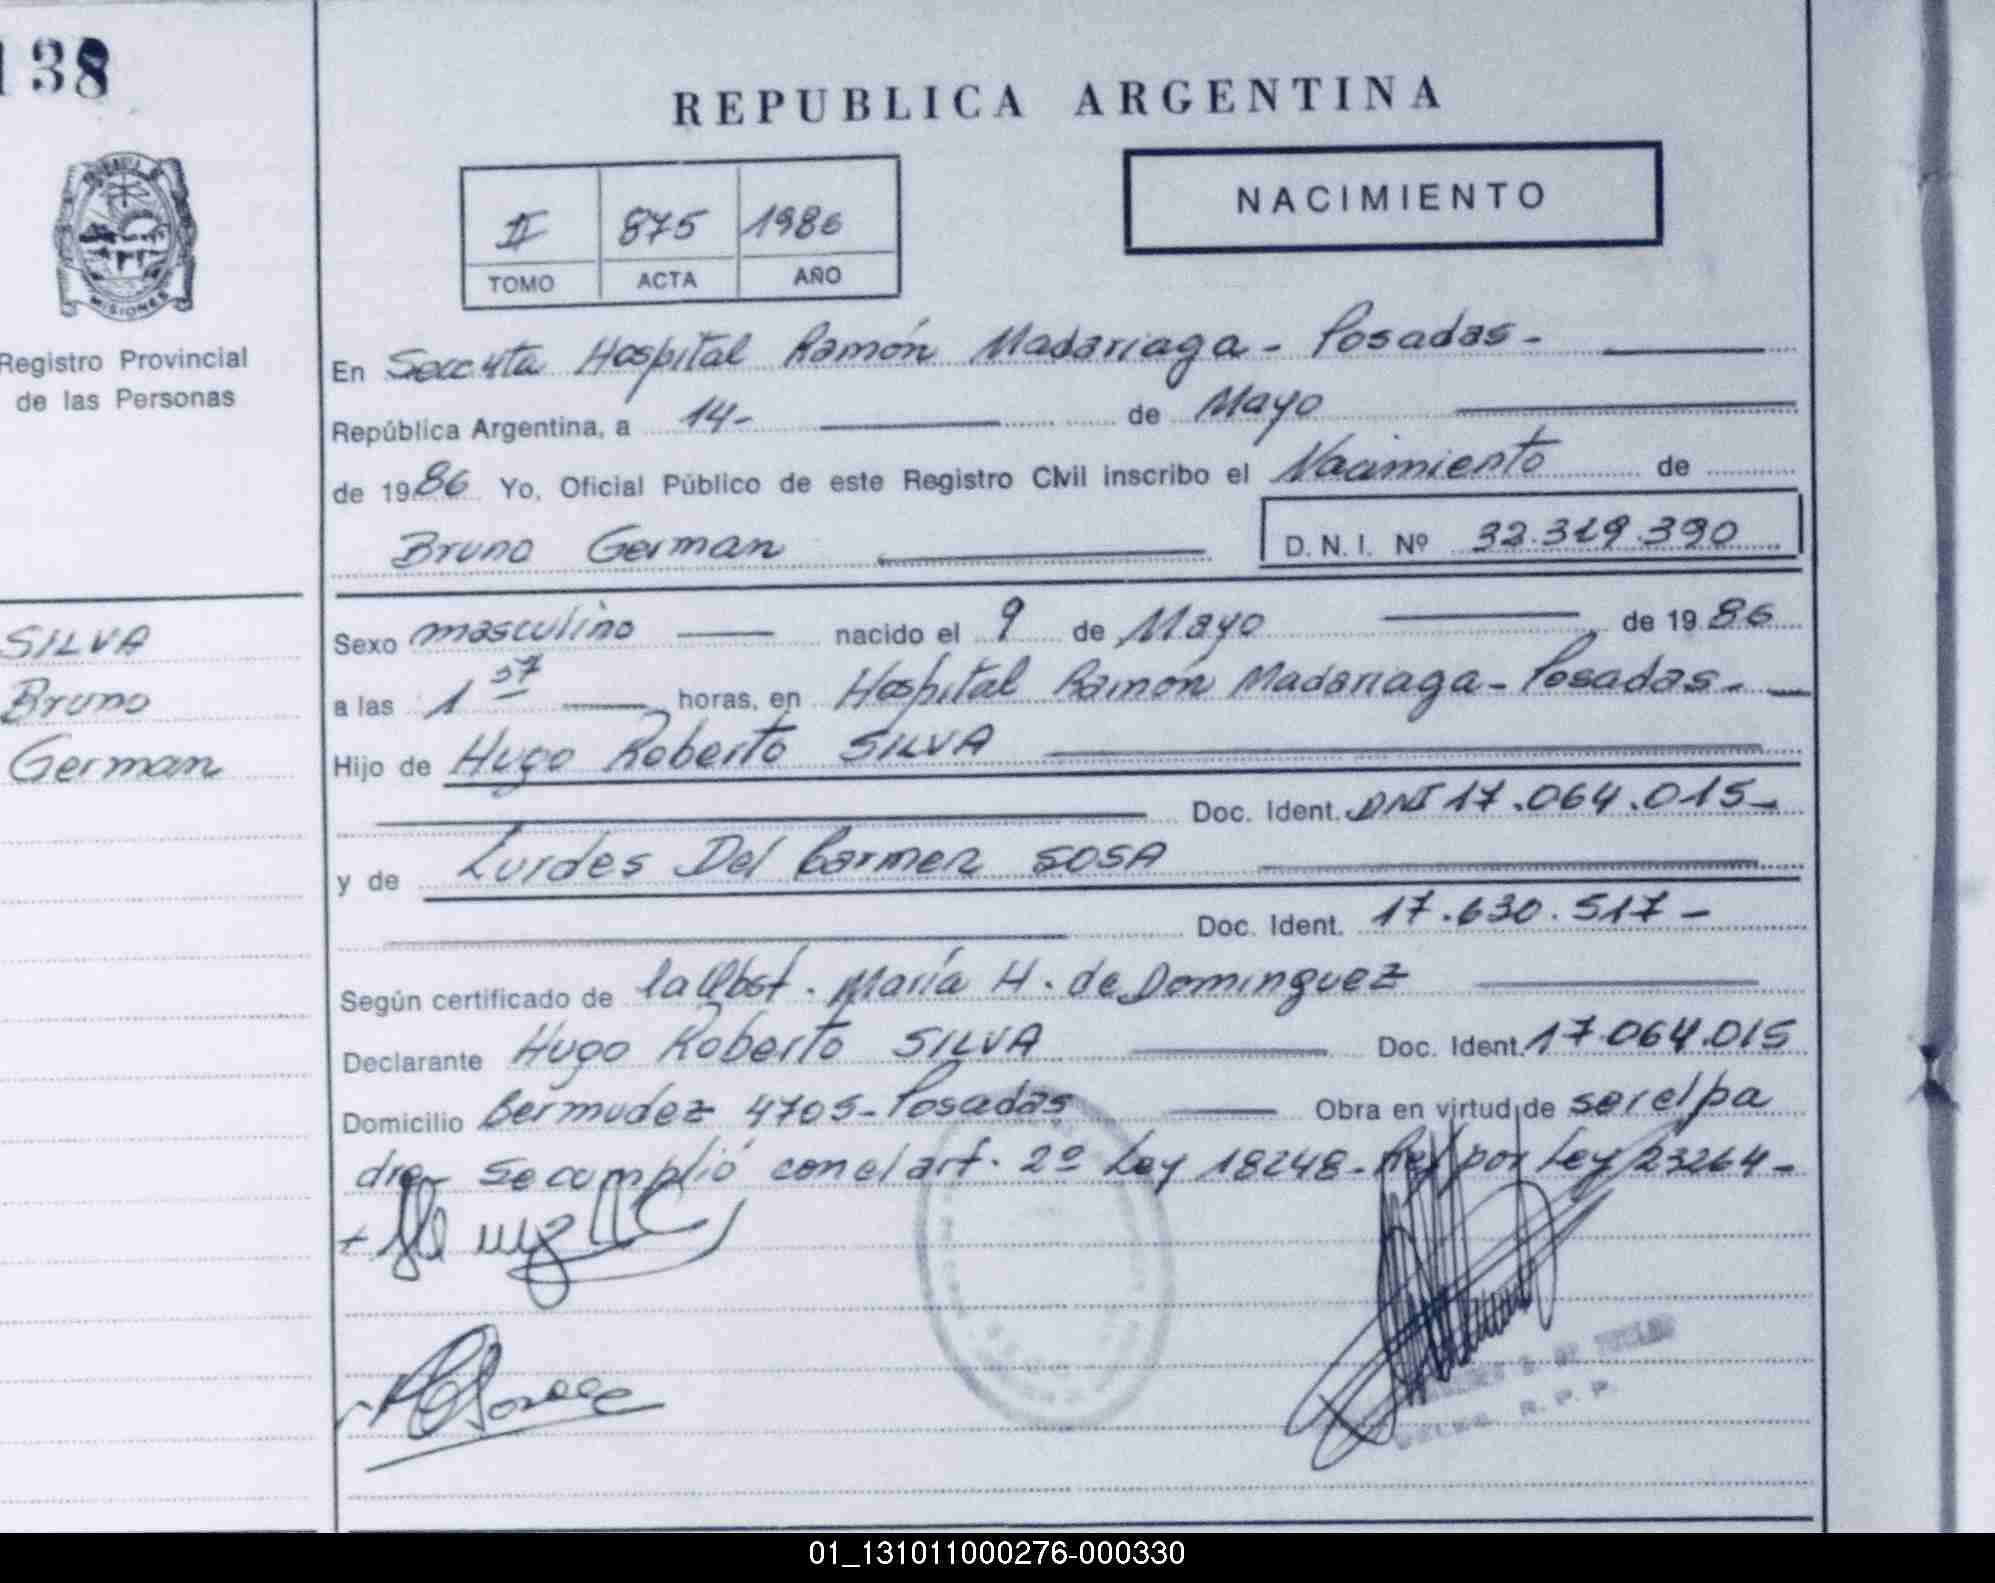 138
REPUBLICA ARGENTINA
NACIMIENTO
II 875 1986
TOMO ACTA AÑO
MISIONES
Registro Provincial
de las Personas
En Secc 4ta Hospital Ramón Madariaga - Posadas -
República Argentina, a 14- de Mayo
de 1986 Yo, Oficial Público de este Registro Civil inscribo el Nacimiento de
Bruno German D.N.I. Nº 32.319.390
SILVA
Bruno
German
Sexo masculino nacido el 9 de Mayo de 1986
a las 1 57 horas, en Hospital Ramón Madariaga - Posadas -
Hijo de Hugo Roberto SILVA
Doc. Ident. DNI 17.064.015-
y de Lurdes Del Carmen SOSA
Doc. Ident. 17.630.517 -
Según certificado de la Obst. María H. de Dominguez
Declarante Hugo Roberto SILVA Doc. Ident. 17.064.015
Domicilio Bermudez 4705 - Posadas Obra en virtud de ser el pa
dre - Se cumplió con el art. 2º Ley 18248 - Ref por Ley 23264 -
R. P. P.
01_131011000276-000330